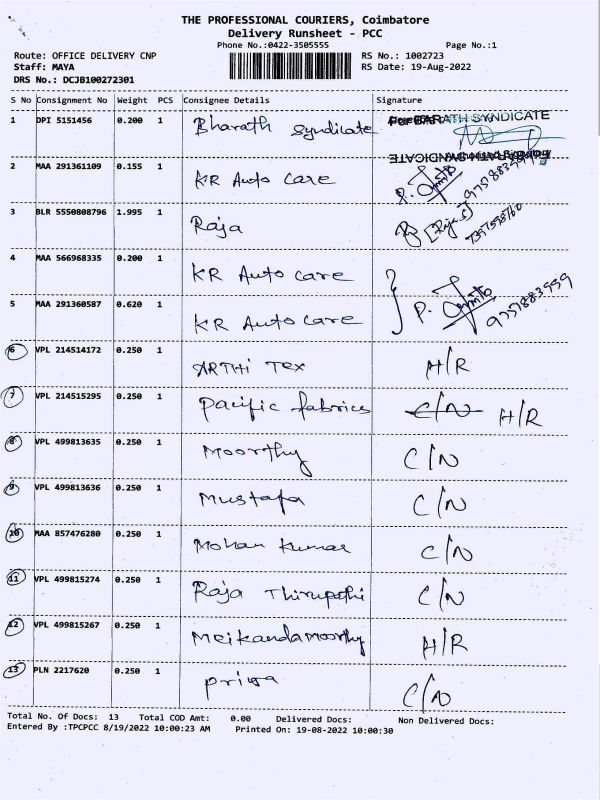 THE PROFESSIONAL COURIERS, Coimbatore
Delivery Runsheet - PCC
Phone No.:0422-3505555 Page No.:1
Route: OFFICE DELIVERY CNP RS No.: 1002723
Staff: MAYA RS Date: 19-Aug-2022
DRS No.: DCJB100272301
S No Consignment No Weight PCS Consignee Details Signature
1 DPI 5151456 0.200 1 Bharath Syndicate For BARATH SYNDICATE
2 MAA 291361109 0.155 1 KR Auto Care
3 BLR 5550808796 1.995 1 Raja
4 MAA 566968335 0.200 1 KR Auto care
5 MAA 291360587 0.620 1 KR Auto care P. 9757883959
6 VPL 214514172 0.250 1 ARTHI TEX H/R
7 VPL 214515295 0.250 1 Pacific fabrics C/N H/R
8 VPL 499813635 0.250 1 Moorthy C/N
9 VPL 499813636 0.250 1 Mustafa C/N
10 MAA 857476280 0.250 1 Mohan Kumar C/N
11 VPL 499815274 0.250 1 Raja Thirupathi C/N
12 VPL 499815267 0.250 1 Meikandamoorthy H/R
13 PLN 2217620 0.250 1 Priya C/N
Total No. Of Docs: 13 Total COD Amt: 0.00 Delivered Docs: Non Delivered Docs:
Entered By :TPCPCC 8/19/2022 10:00:23 AM Printed On: 19-08-2022 10:00:30